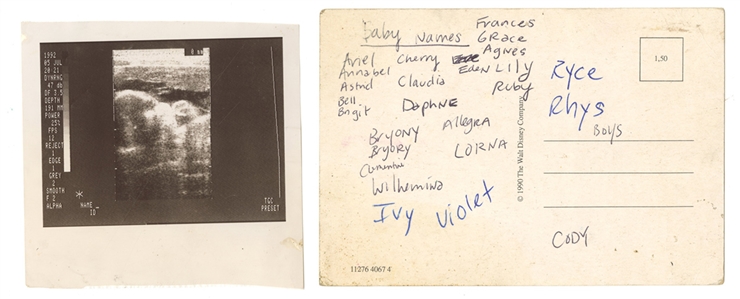 1992
05 JUL
20:21
DYNRNG
47 db
DF 3.5
DEPTH
191 MM
POWER
25%
FPS
12
REJECT
1
EDGE
1
GREY
2
SMOOTH
F 2
ALPHA
NAME _
ID
TGC
PRESET
Baby Names
Ariel
Annabel
Astrid
Bell
Brigit
Cherry
Claudia
Daphne
Bryony
Bryory
Clementine
Wilhemina
Ivy Violet
Allegra
Lorna
Frances
Grace
Agnes
Eden Lily
Ruby
© 1990 The Walt Disney Company
1,50
Ryce
Rhys
Boys
Cody
11276 4067 4